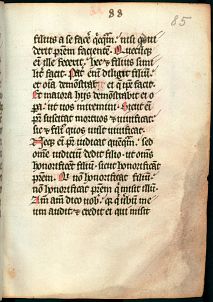 88
85
filius a se facere qcqm. nisi quod
derit prem facientem. Quecuq;
eni ille fecerit. hec & filius simi
lit facit. Pat eni diligit filiu.
et oia demostrat ei q ipe facit.
Et maiora his demostrabit ei o
pa. ut uos miremini. Sicut eni
pr suscitat mortuos & uiuificat.
sic & fili quos uult uiuificat.
Neq; eni pr iudicat queqm. sed
ome iudiciu dedit filio. ut oms
honorificet filiu. sicut honorificat
prem. Qui no honorificat filiu.
no honorificat prem q misit illu.
Am am dico uob. q q ubu me
um audit. & credit ei qui misit